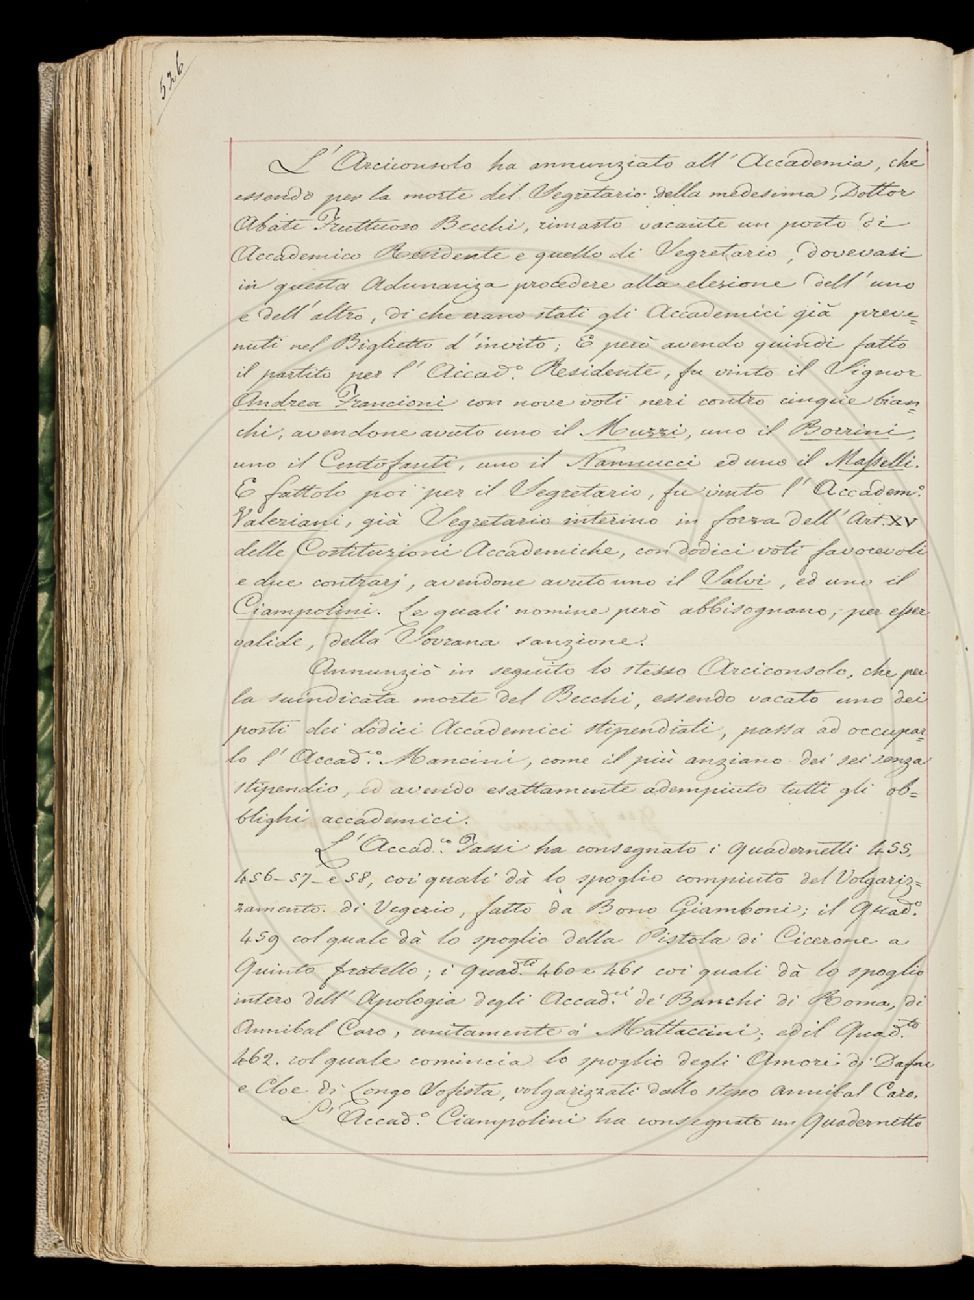 526
L'Arciconsolo ha annunziato all'Accademia, che
essendo per la morte del Segretario della medesima, Dottor
Abate Fruttuoso Becchi, rimasto vacante un posto di
Accademico Residente e quello di Segretario, dovevasi
in questa Adunanza procedere alla elezione dell'uno
e dell'altro, di che erano stati gli Accademici già preve=
nuti nel Biglietto d'invito; E però avendo quindi fatto
il partito per l'Accad.º Residente, fu vinto il Signor
Andrea Francioni con nove voti neri contro cinque bian=
chi, avendone avuto uno il Muzzi, uno il Borrini,
uno il Centofanti, uno il Nannucci ed uno il Masselli.
E fattolo poi per il Segretario, fu vinto l'Accadem.º
Valeriani, già Segretario interino in forza dell'Art. XV
delle Costituzioni Accademiche, con dodici voti favorevoli
e due contrarj, avendone avuto uno il Salvi, ed uno il
Ciampolini. Le quali nomine però abbisognano, per esser
valide, della Sovrana sanzione.
Annunziò in seguito lo stesso Arciconsolo, che per
la suindicata morte del Becchi, essendo vacato uno dei
posti dei dodici Accademici stipendiati, passa ad occupar=
lo l'Accad.co Mancini, come il più anziano dei sei senza
stipendio, ed avendo esattamente adempiuto tutti gli ob=
blighi accademici.
L'Accad.co Tassi ha consegnato i Quadernetti 455,
456-57-e 58, coi quali dà lo spoglio compiuto del Volgariz=
zamento di Vegezio, fatto da Bono Giamboni; il Quad.º
459 col quale dà lo spoglio della Pistola di Cicerone a
Quinto fratello; i Quad.ti 460 e 461 coi quali dà lo spoglio
intero dell'Apologia degli Accad.ci de' Banchi di Roma, di
Annibal Caro, unitamente a' Mattaccini; ed il Quad.to
462. col quale comincia lo spoglio degli Amori di Dafne
e Cloe di Longo Sofista, volgarizzati dallo stesso Annibal Caro.
L'Accad.º Ciampolini ha consegnato un Quadernetto